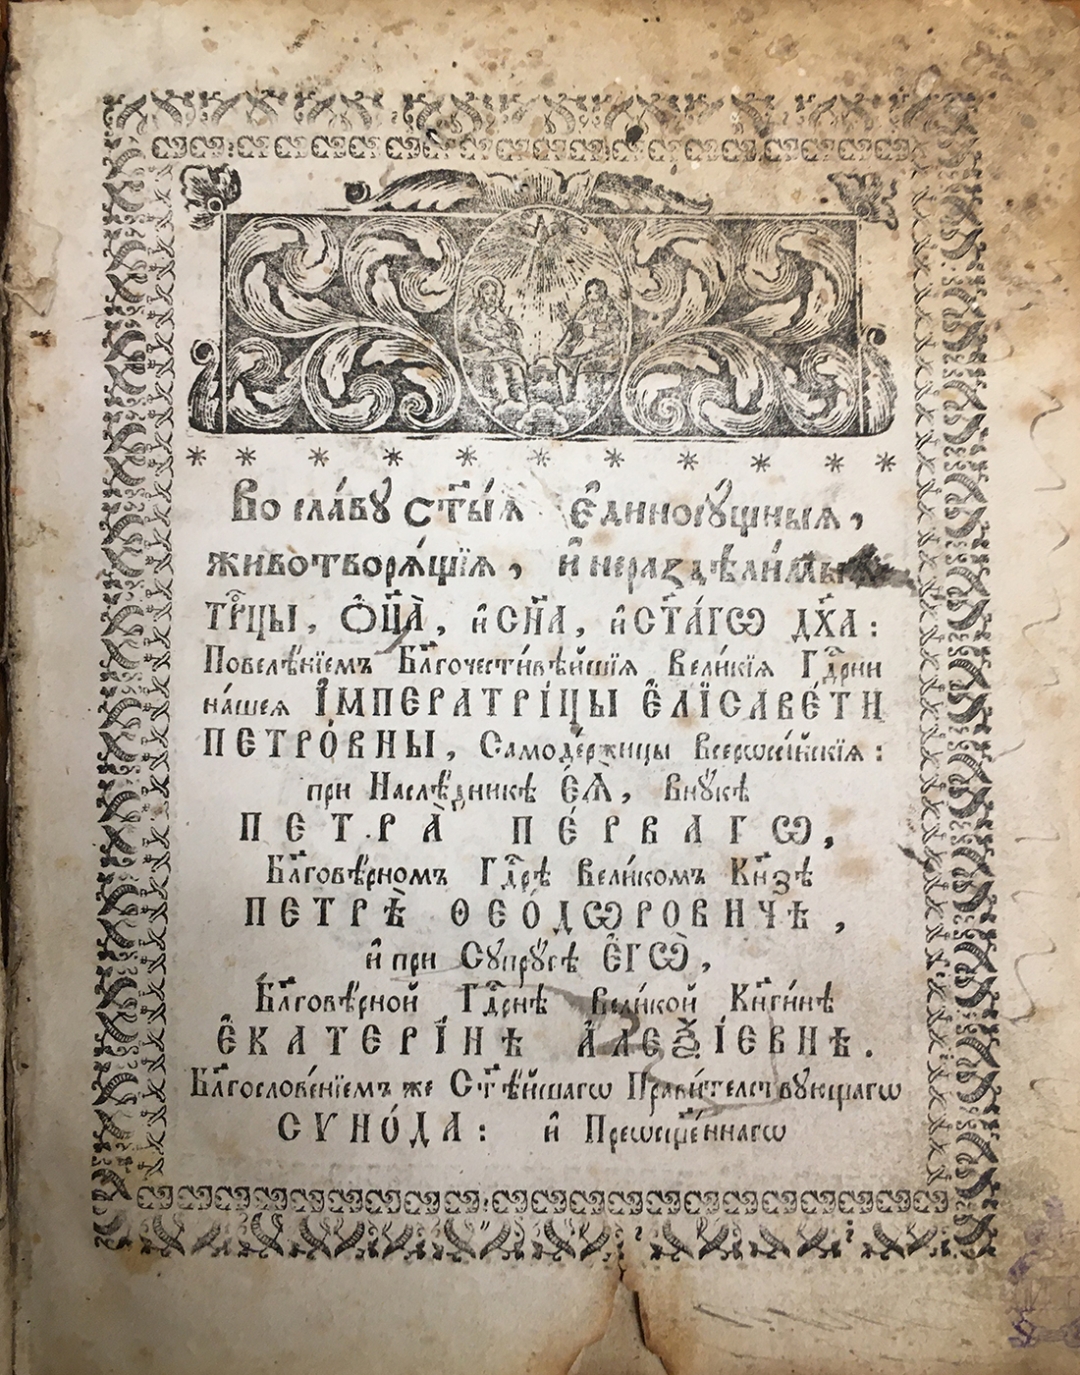 Во сла́вꙋ ст҃ы́ѧ Є҆диносꙋ́щныѧ,
животворѧ́щїѧ, и҆ нераздѣли́мыѧ
трⷪ҇цы, Ѻ҆ц҃а̀, и҆ сн҃а, и҆ ст҃а́гѡ дх҃а:
Повелѣ́нїемъ Бл҃гочести́вѣйшїѧ Вели́кїѧ Гдⷭ҇рни
на́шеѧ І҆МПЕРАТРІ́ЦЫ Є҆ЛІСАВЕ́ТИ
ПЕТРО́ВНЫ, Самоде́ржицы Всерѡссі́йскїѧ:
при Наслѣ́дникѣ Є҆Ѧ̀, Внꙋ́кѣ
ПЕТРА̀ ПЕ́РВАГѠ,
Бл҃говѣ́рномъ Гдⷭ҇рѣ Вели́комъ Кн҃зѣ
ПЕТРѢ̀ ѲЕО́ДѠРОВИЧѢ,
и҆ при Сꙋпрꙋ́гѣ Є҆ГѠ̀,
Бл҃говѣ́рной Гдⷭ҇рнѣ Вели́кой Кн҃ги́нѣ
Є҆КАТЕРІ́НѢ А҆ЛЕѮІ́ЕВНѢ.
Бл҃гослове́нїемъ же Ст҃ѣ́йшагѡ Прави́телствꙋющагѡ
СѴНО́ДА: и҆ Преѡсщ҃е́ннагѡ